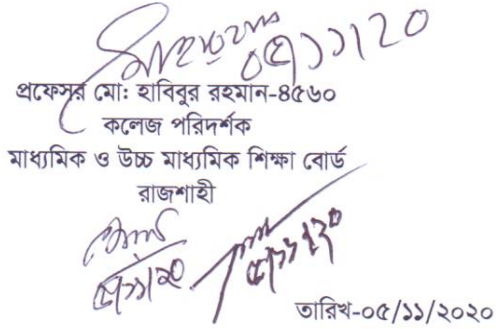 ০৫/১১/২০
প্রফেসর মো: হাবিবুর রহমান-৪৫৬০
কলেজ পরিদর্শক
মাধ্যমিক ও উচ্চ মাধ্যমিক শিক্ষা বোর্ড
রাজশাহী
তারিখ-০৫/১১/২০২০